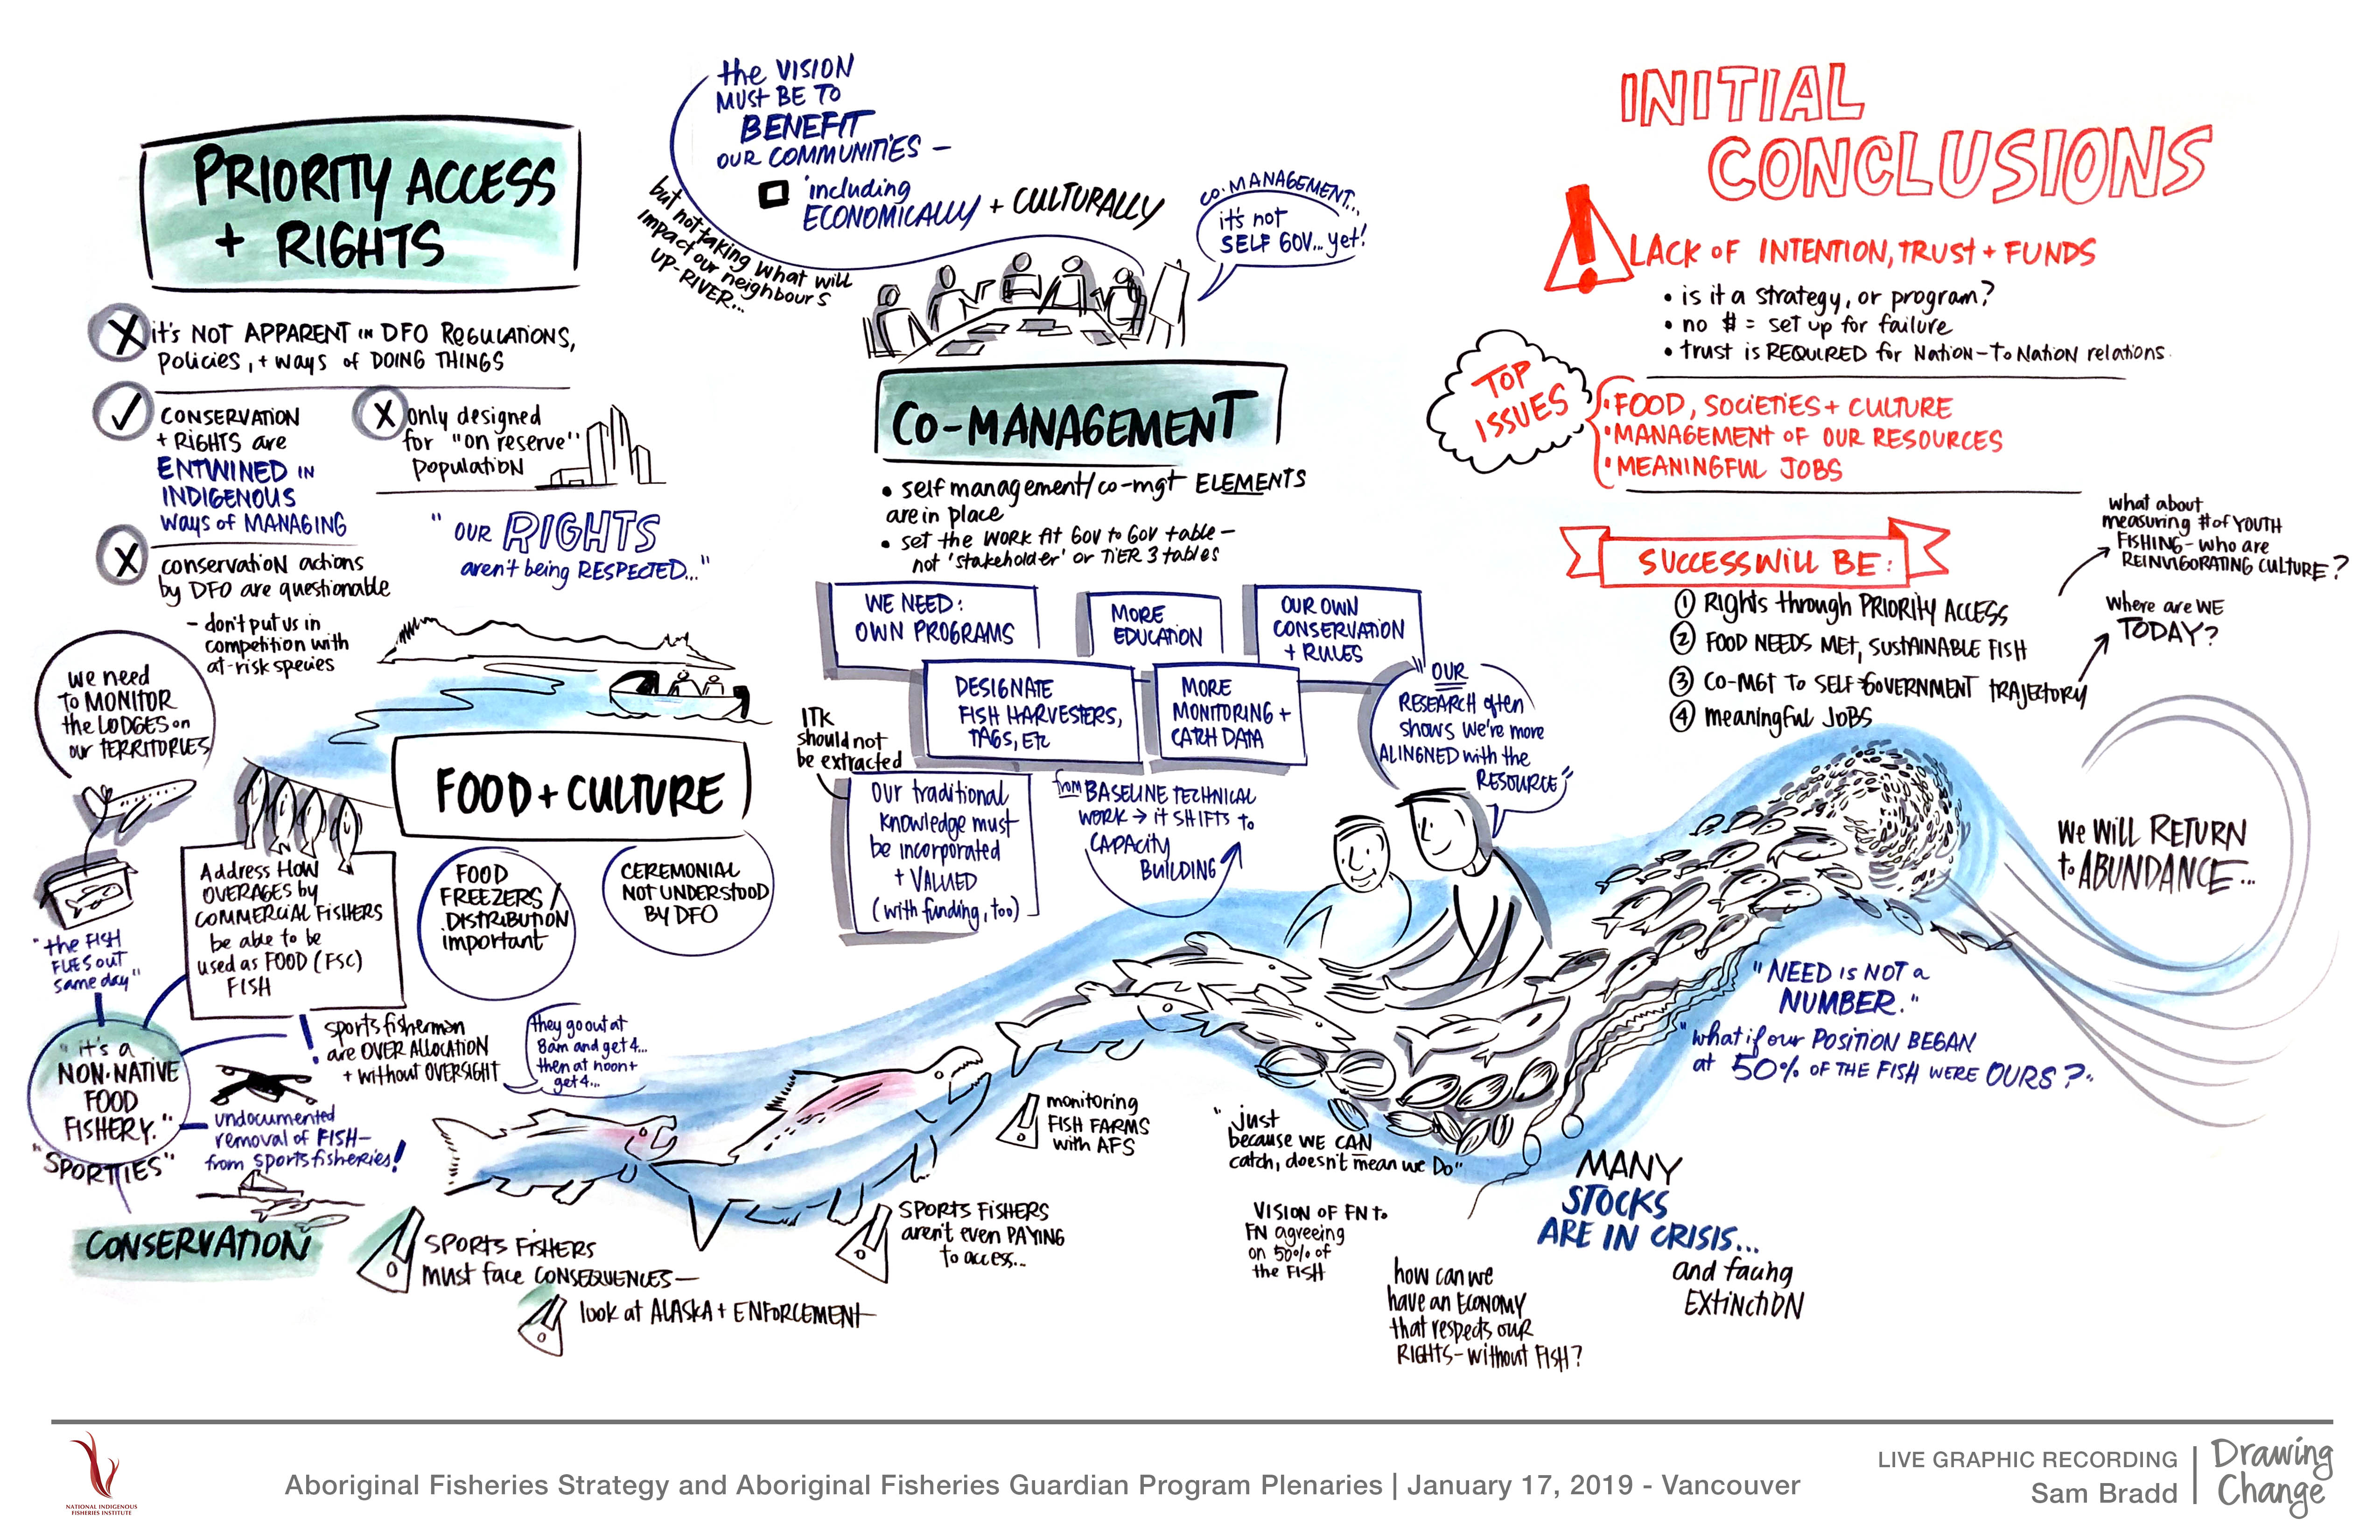 PRIORITY ACCESS
+ RIGHTS
it's NOT APPARENT IN DFO REGULATIONS,
policies, + ways of DOING THINGS
CONSERVATION
+ RIGHTS are
ENTWINED IN
INDIGENOUS
ways of MANAGING
only designed
for "on reserve"
population
conservation actions
by DFO are questionable
- don't put us in
competition with
at-risk species
"OUR RIGHTS
aren't being RESPECTED..."
we need
to MONITOR
the LODGES on
our TERRITORIES
FOOD + CULTURE
Address HOW
OVERAGES by
COMMERCIAL FISHERS
be able to be
used as FOOD (FSC)
FISH
FOOD
FREEZERS /
DISTRIBUTION
important
CEREMONIAL
NOT UNDERSTOOD
BY DFO
"the FISH
FLIES OUT
same day"
"it's a
NON-NATIVE
FOOD
FISHERY."
"SPORTIES"
! sports fisherman
are OVER ALLOCATION
+ without OVERSIGHT
they go out at
8am and get 4...
then at noon +
get 4...
undocumented
removal of FISH-
from sports fisheries!
CONSERVATION
! SPORTS FISHERS
must face CONSEQUENCES-
! look at ALASKA + ENFORCEMENT
! SPORTS FISHERS
aren't even PAYING
to access...
! monitoring
FISH FARMS
with AFS
the VISION
MUST BE TO
BENEFIT
OUR COMMUNITIES -
including
ECONOMICALLY + CULTURALLY
but not taking what will
impact our neighbours
UP-RIVER...
CO-MANAGEMENT...
it's not
SELF GOV... yet!
CO-MANAGEMENT
• self management/co-mgt ELEMENTS
are in place
• set the WORK At GOV to GOV table -
not 'stakeholder' or TIER 3 tables
WE NEED:
OWN PROGRAMS
MORE
EDUCATION
OUR OWN
CONSERVATION
+ RULES
DESIGNATE
FISH HARVESTERS,
TAGS, Etc
MORE
MONITORING +
CATCH DATA
"OUR
RESEARCH often
shows we're more
ALINGNED with the
RESOURCE"
ITK
should not
be extracted
our traditional
knowledge must
be incorporated
+ VALUED
(with funding, too)
from BASELINE TECHNICAL
WORK → it SHIFTS to
CAPACITY
BUILDING
"just
because WE CAN
catch, doesn't mean we Do"
VISION OF FN to
FN agreeing
on 50% of
the FISH
how can we
have an ECONOMY
that respects our
RIGHTS - without FISH?
MANY
STOCKS
ARE IN CRISIS...
and facing
EXTINCTION
INITIAL
CONCLUSIONS
! LACK OF INTENTION, TRUST + FUNDS
• is it a strategy, or program?
• no $ = set up for failure
• trust is REQUIRED for Nation-To Nation relations.
TOP
ISSUES
• FOOD, SOCIETIES + CULTURE
• MANAGEMENT OF OUR RESOURCES
• MEANINGFUL JOBS
SUCCESS WILL BE:
① Rights through PRIORITY ACCESS
② FOOD NEEDS MET, SUSTAINABLE FISH
③ CO-MGT TO SELF-GOVERNMENT TRAJECTORY
④ meaningful JOBS
what about
measuring # of YOUTH
FISHING - who are
REINVIGORATING CULTURE?
Where are WE
TODAY?
We WILL RETURN
to ABUNDANCE...
"NEED is NOT a
NUMBER."
"what if our POSITION BEGAN
at 50% OF THE FISH WERE OURS?"
NATIONAL INDIGENOUS
FISHERIES INSTITUTE
Aboriginal Fisheries Strategy and Aboriginal Fisheries Guardian Program Plenaries | January 17, 2019 - Vancouver
LIVE GRAPHIC RECORDING
Sam Bradd
Drawing
Change